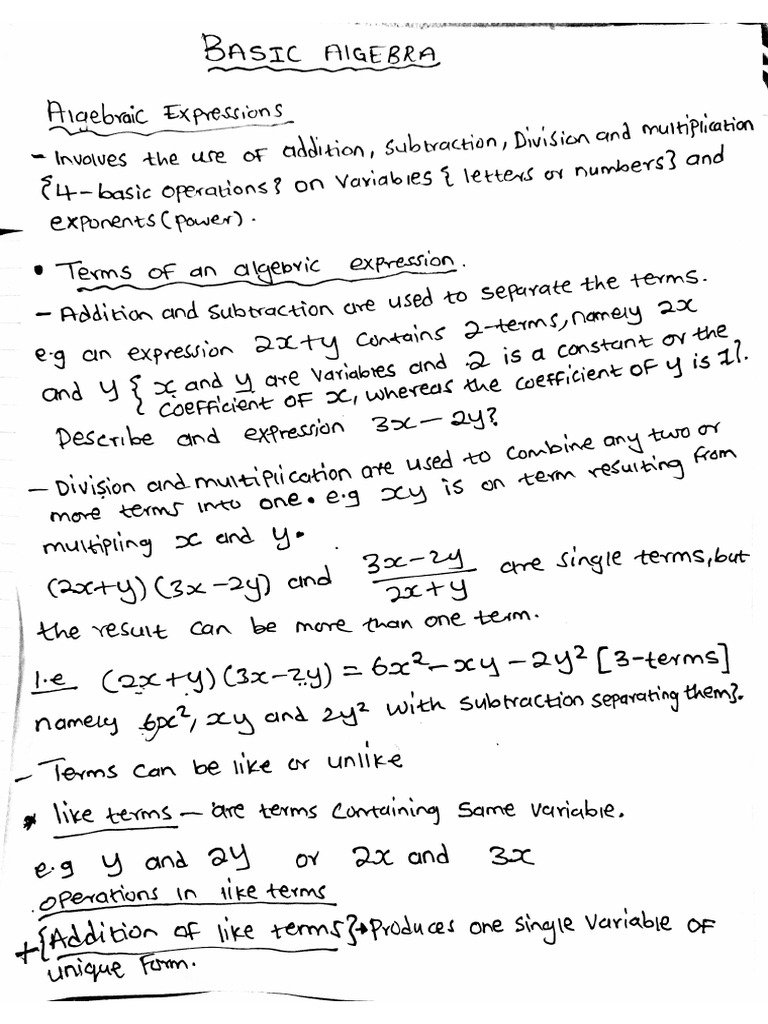 BASIC AlGEBRA
Algebraic Expressions
- Involves the use of addition, Subtraction, Division and multiplication
{4-basic operations} on Variables { letters or numbers} and
exponents (power).
• Terms of an algebric expression.
- Addition and Subtraction are used to separate the terms.
e.g an expression 2x+y contains 2-terms, namely 2x
and y { x and y are variables and 2 is a constant or the
coefficient of x, whereas the coefficient of y is 1}.
Describe and expression 3x-2y?
- Division and multiplication are used to combine any two or
more terms into one. e.g xy is on term resulting from
multipling x and y.
(2x+y)(3x-2y) and (3x-2y)/(2x+y) are single terms, but
the result can be more than one term.
I.e (2x+y)(3x-2y) = 6x² - xy - 2y² [3-terms]
namely 6x², xy and 2y² with subtraction separating them}.
- Terms can be like or unlike
* like terms - are terms containing same variable.
e.g y and 2y or 2x and 3x
operations in like terms
+{Addition of like terms}→Produces one single variable of
unique form.